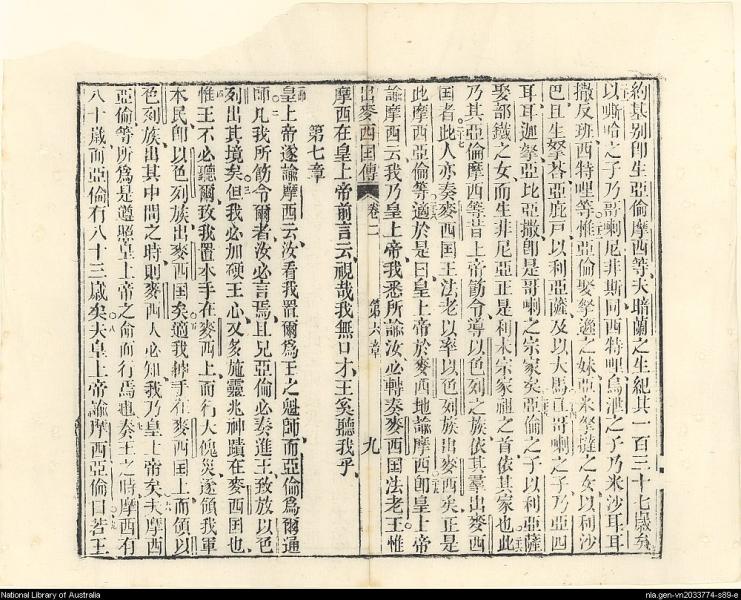 約基別卽生亞倫摩西等夫暗蘭之生紀其一百三十七歲矣
以嘶哈之子乃哥喇尼非斯同西特哩烏泄之子乃米沙耳耳
撒反班西特哩等惟亞倫娶拏遜之妹亞米拏撻之女以利沙
巴且生拏荅亞庇戸以利亞薩及以大馬宜哥喇之子乃亞西
耳耳迦拏亞比亞撒卽是哥喇之宗家矣亞倫之子以利亞薩
娶部鐵之女而生非尼亞正是利未宗家祖之首依其家也此
乃其亞倫摩西等昔上帝飭令導以色列之族依其羣出麥西
国者此人亦奏麥西国王法老以率以色列族出麥西矣正是
此摩西亞倫等適於是日皇上帝於麥西地諭摩西卽皇上帝
諭摩西云我乃皇上帝我悉所諭汝必轉奏麥西国法老王惟
出麥西国傳 卷二 第六章 九
摩西在皇上帝前言云視哉我無口才王奚聽我乎
第七章
皇上帝遂諭摩西云汝看我置爾爲王之魁師而亞倫爲爾通
師凡我所飭令爾者汝必言焉且兄亞倫必奏進王致放以色
列出其境矣但我必加硬王心又多施靈兆神蹟在麥西国也
惟王不必聽爾致我置本手在麥西上而行大愧災遂領我軍
本民卽以色列族出麥西国矣適我伸手在麥西国上而領以
色列族出其中間之時則麥西人必知我乃皇上帝矣夫摩西
亞倫等所爲是遵照皇上帝之諭而行焉也奏王之時摩西有
八十歲而亞倫有八十三歲矣夫皇上帝諭摩西亞倫曰若王
National Library of Australia
nla.gen-vn2033774-s89-e